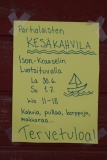 Partiolaisten
KESÄKAHVILA
Ison-Kaaselin
Luotsituvalla
La 30.6.
Su 1.7.
klo 11-18
Kahvia, pullaa, karppeja,
makkaraa...
Tervetuloa!